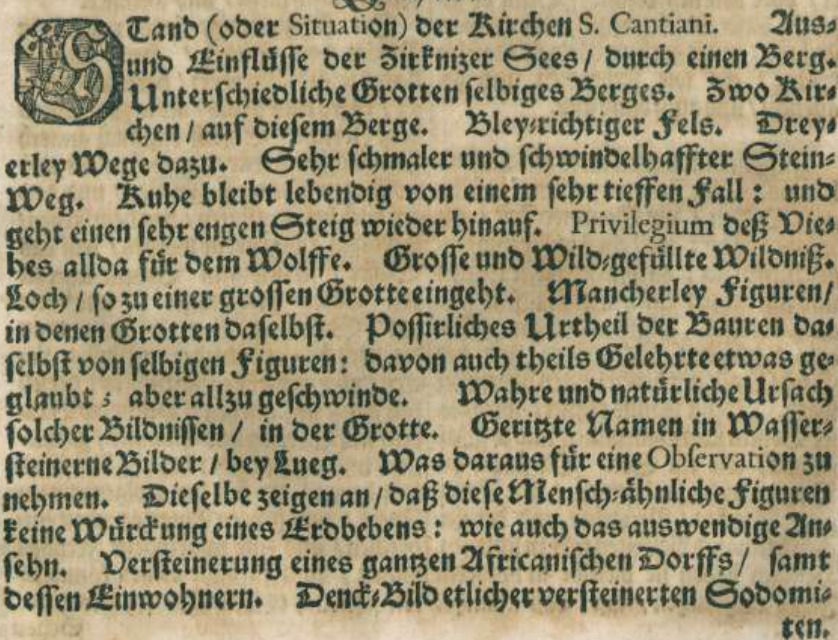 STand (oder Situation) der Kirchen S. Cantiani. Aus-
und Einflüsse der Zirknizer Sees / durch einen Berg.
Unterschiedliche Grotten selbiges Berges. Zwo Kir-
chen / auf diesem Berge. Bley-richtiger Fels. Drey-
erley Wege dazu. Sehr schmaler und schwindelhaffter Stein-
Weg. Kuhe bleibt lebendig von einem sehr tieffen Fall: und
geht einen sehr engen Steig wieder hinauf. Privilegium deß Vie-
hes allda für dem Wolffe. Grosse und Wild-gefüllte Wildniß.
Loch / so zu einer grossen Grotte eingeht. Mancherley Figuren /
in denen Grotten daselbst. Possirliches Urtheil der Bauren da-
selbst von selbigen Figuren: davon auch theils Gelehrte etwas ge-
glaubt; aber allzu geschwinde. Wahre und natürliche Ursach
solcher Bildnissen / in der Grotte. Geritzte Namen in Wasser-
steinerne Bilder / bey Lueg. Was daraus für eine Observation zu
nehmen. Dieselbe zeigen an / daß diese Mensch-ähnliche Figuren
keine Würckung eines Erdbebens: wie auch das auswendige An-
sehn. Versteinerung eines gantzen Africanischen Dorffs / samt
dessen Einwohnern. Denck-Bild etlicher versteinerten Sodomi-
ten.